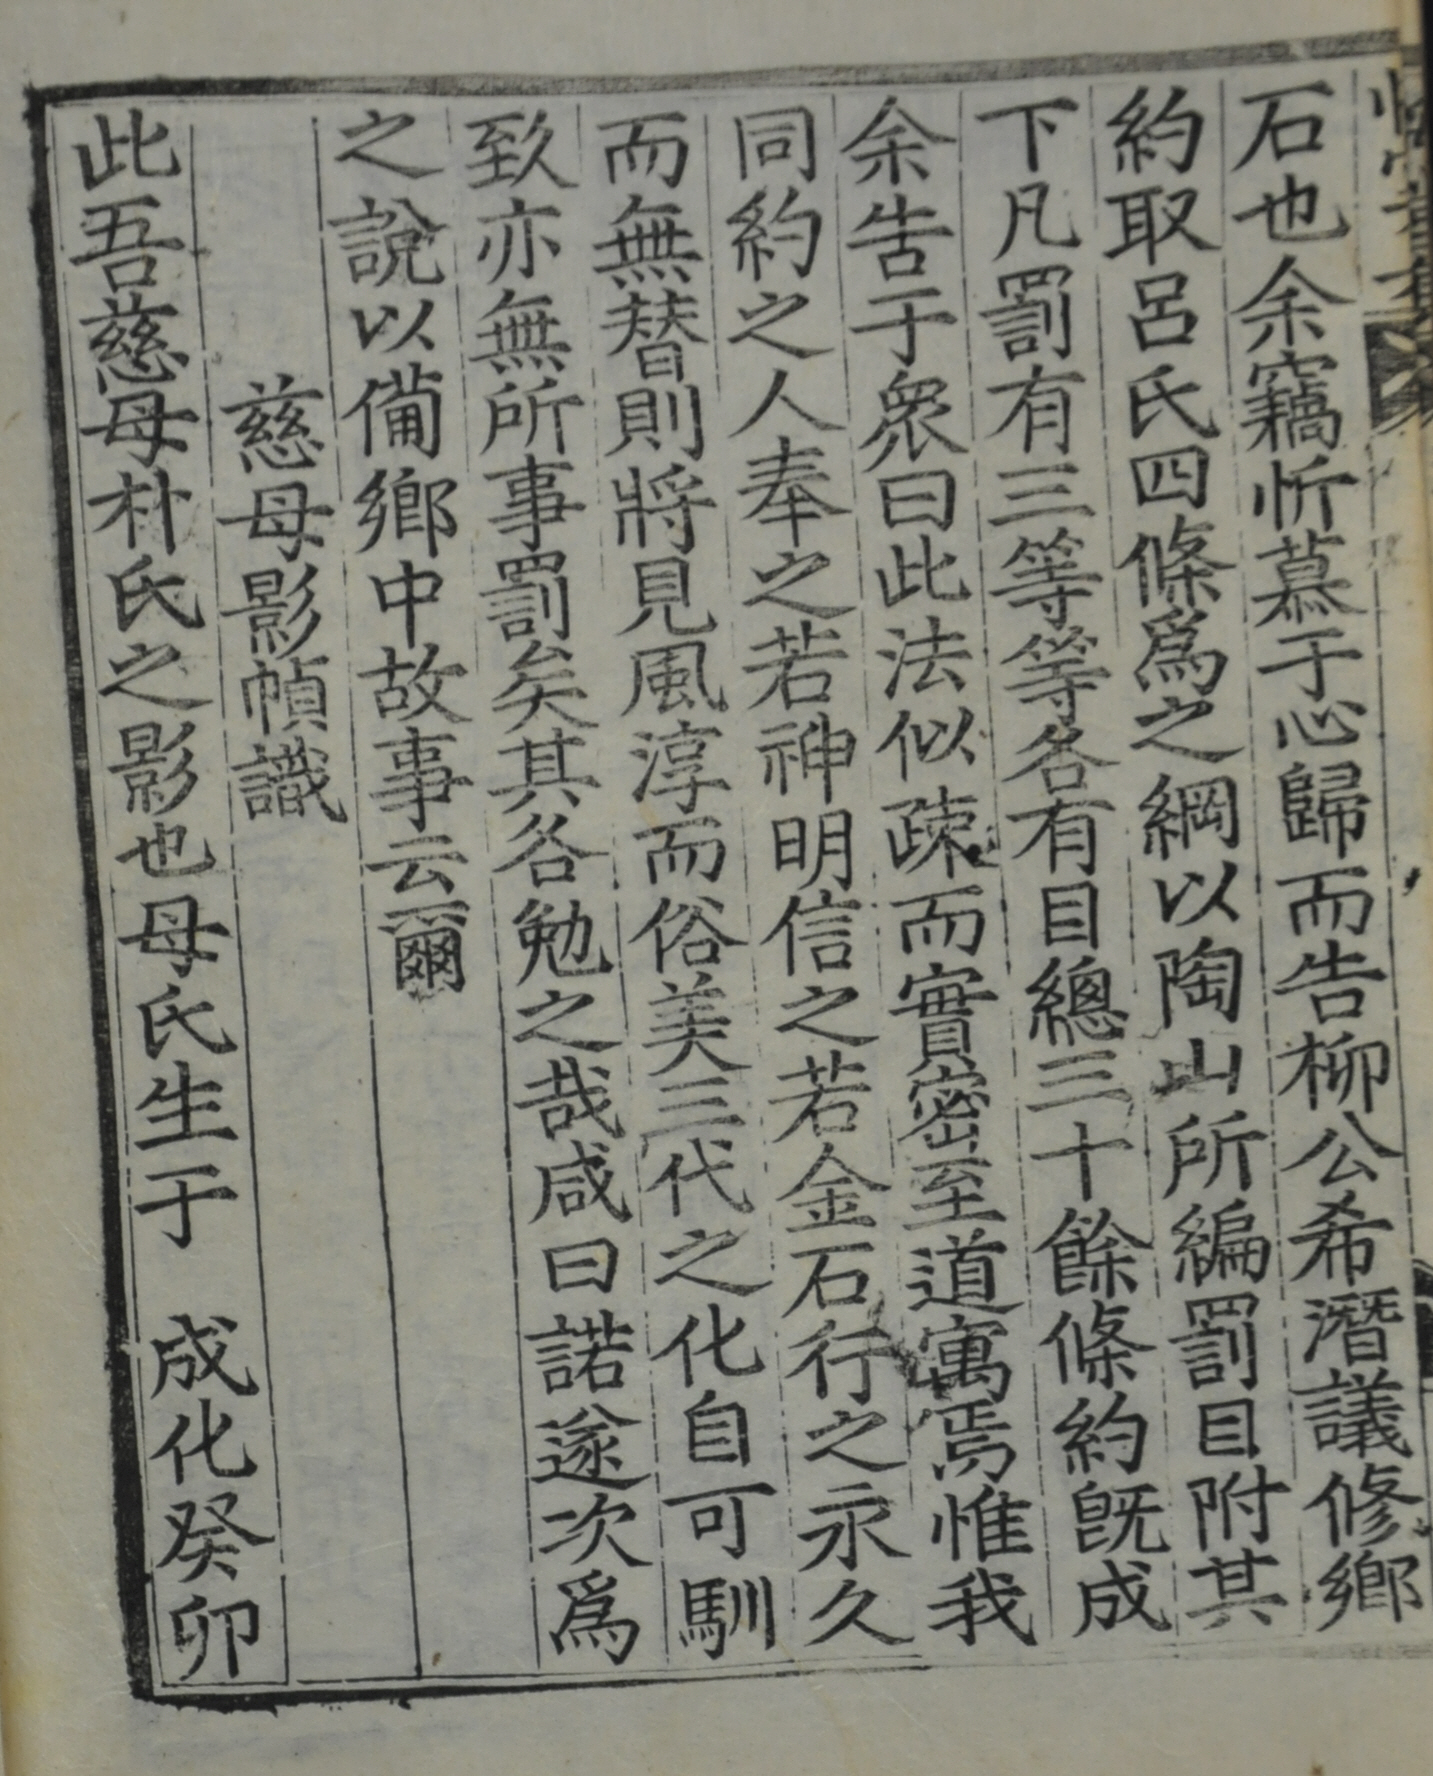 石也余竊忻慕于心歸而告柳公希潛議修鄉
約取呂氏四條爲之綱以陶山所編罰目附其
下凡罰有三等等各有目總三十餘條約旣成
余告于衆曰此法似疎而實密至道寓焉惟我
同約之人奉之若神明信之若金石行之永久
而無替則將見風淳而俗美三代之化自可馴
致亦無所事罰矣其各勉之哉咸曰諾遂次爲
之說以備鄉中故事云爾
慈母影幀識
此吾慈母朴氏之影也母氏生于 成化癸卯